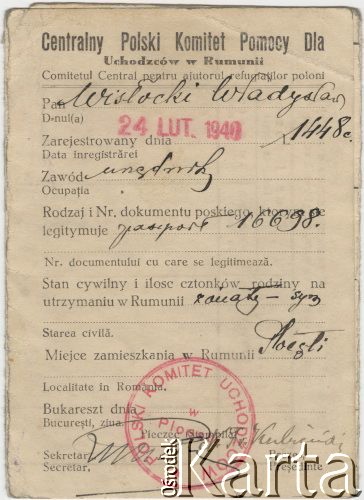 Centralny Polski Komitet Pomocy Dla
Uchodzców w Rumunii
Comitetul Central pentru ajutorul refugiaților poloni
Pan Wisłocki Władysław
D-nul(a)
24 LUT. 1940 L. 1448c.
Zarejestrowany dnia
Data inregistrărei
Zawód urzędnik
Ocupația
Rodzaj i Nr. dokumentu poskiego, którym się
legitymuje paszport 16638.
Nr. documentului cu care se legitimează.
Stan cywilny i ilosc cztonków rodziny na
utrzymaniu w Rumunii żonaty – syn
Starea civilă.
Miejsce zamieszkania w Rumunii Ploeşti
Localitate in România.
Bukareszt dnia
Bucureşti, ziua
Pieczęć
POLSKI KOMITET UCHODŹCÓW
w
Sekretar
Secretar,
Preşedinte
ośrodek
karta